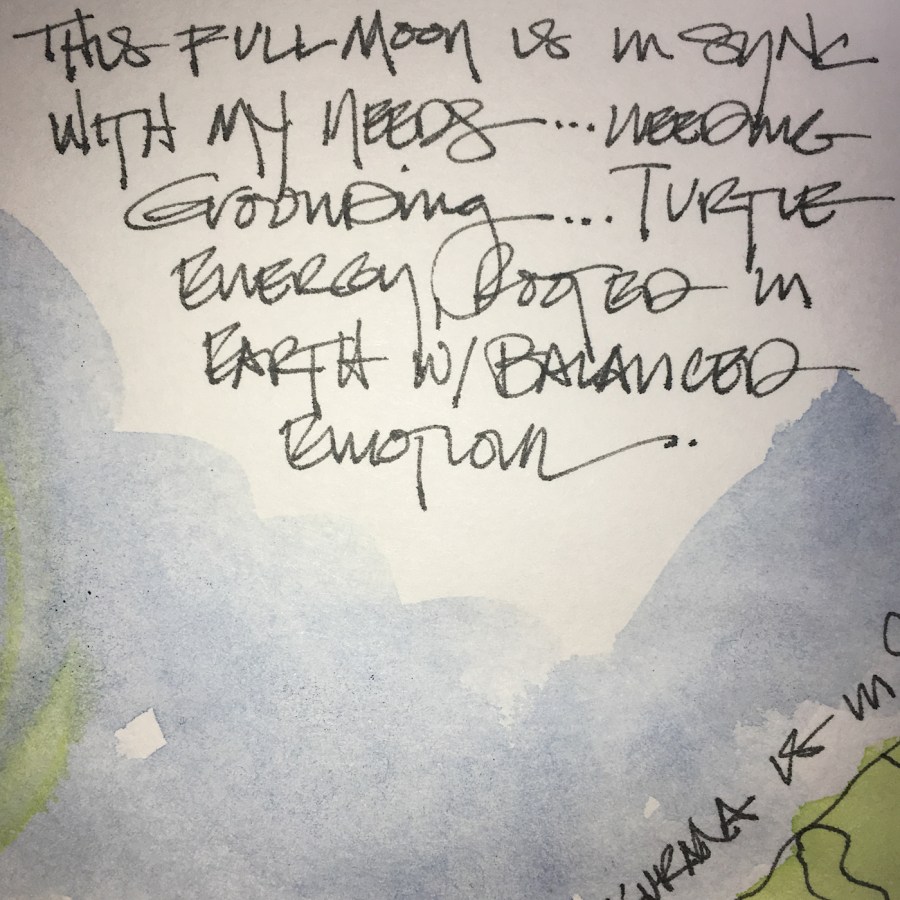 THIS FULL MOON IS IN SYNC
WITH MY NEEDS...NEEDING
GROUNDING...TURTLE
ENERGY, ROOTED IN
EARTH W/BALANCED
EMOTION..
IS IN